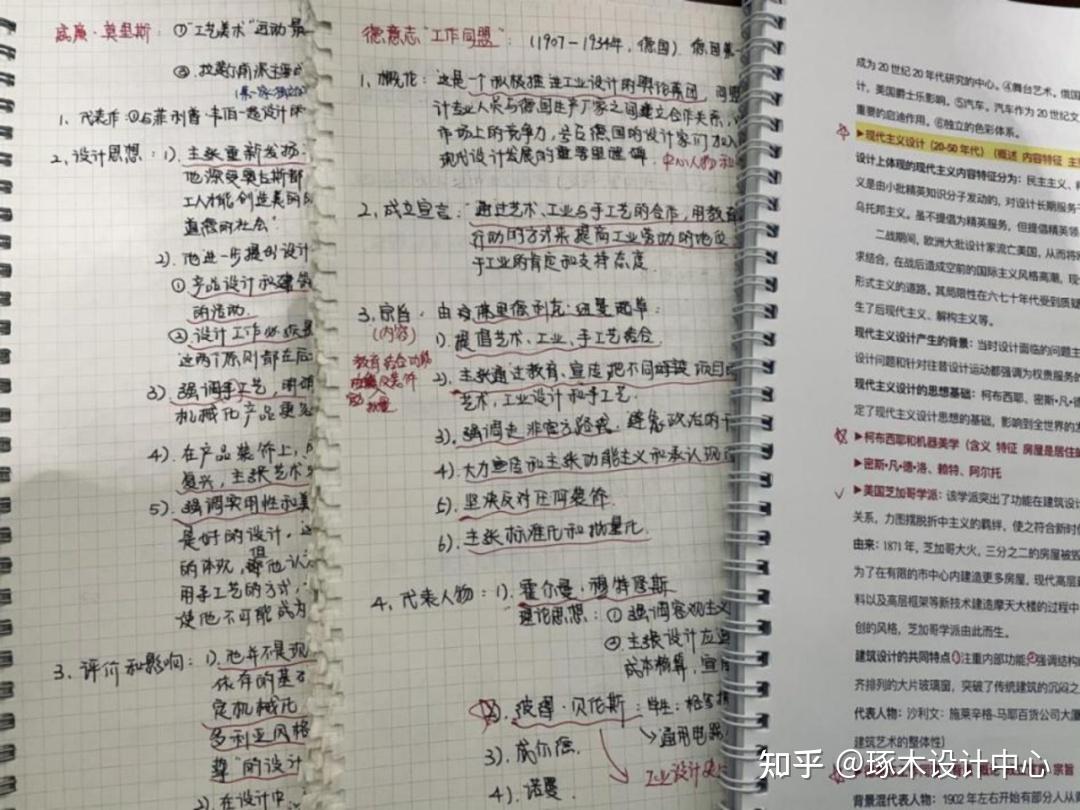 威廉·莫里斯：①"工艺美术"运动最
②.拉斐尔前派主要成
1、代表作：①与菲利普·韦伯一起设计的
2、设计思想：1）.主张重新发扬
他深受奥古斯都
工人才能创造美的
道德的社会"
2）.他进一步提倡设计
①产品设计和建筑
的活动.
②设计工作必须是
这两个原则都在后
3）.强调手工艺，明确
机械化产品
4）.在产品装饰上，
复兴，主张艺术
5）.强调实用性和美
是好的设计，
的体现，但他认
用手工艺的方式，
使他不可能成为
3、评价和影响：1）.他并不是现
依存的基
定机械化
多利亚风格
"的设计
2）.在设计中
德意志"工作同盟"：（1907-1934年，德国）德国第一
1、概况：这是一个积极推进工业设计的舆论集团，同盟
计专业人员与德国生产厂家之间建立合作关系，
市场上的竞争力，号召德国的设计家们加入
现代设计发展的重要里程碑.中心人物
2、成立宣言："通过艺术、工业与手工艺的合作，用教育
行动的方式来提高工业劳动的地位
于工业的肯定和支持态度.
3、宗旨：由弗里德利克·纽曼起草：
（内容）
1）.提倡艺术、工业、手工艺结合
教育结合功能
2）.主张通过教育、宣传把不同的 项目
艺术，工业设计和手工艺.
3）.强调走非官方路线，避免政治的干
4）.大力宣传和主张功能主义和承认现
5）.坚决反对任何装饰.
6）.主张标准化和批量化.
4、代表人物：1）.霍尔曼·穆特修斯
理论思想：①强调客观主义
②主张设计应
成本核算，宣
2）.彼得·贝伦斯：学生：格罗
通用电器
3）.威尔德.
工业设计
4）.诺曼.
成为20世纪20年代研究的中心。④舞台艺术。俄国
计。美国爵士乐影响。⑤汽车。汽车作为20世纪文
重要的启迪作用。⑥独立的色彩体系。
▶现代主义设计（20-50年代）（概述 内容特征 主
设计上体现的现代主义内容特征分为：民主主义、精
义是由小批精英知识分子发动的，对设计长期服务于
乌托邦主义。虽不提倡为精英服务，但提倡精英领
二战期间，欧洲大批设计家流亡美国，从而将
求结合，在战后造成空前的国际主义风格高潮。现
形式主义的道路。其局限性在六七十年代受到质疑
生了后现代主义、解构主义等。
现代主义设计产生的背景：当时设计面临的问题主
设计问题和针对往昔设计运动都强调为权贵服务的
现代主义设计的思想基础：柯布西耶、密斯·凡·德
定了现代主义设计思想的基础，影响到全世界的
▶柯布西耶和机器美学（含义 特征 房屋是居住的
▶密斯·凡·德·洛、赖特、阿尔托
▶美国芝加哥学派：该学派突出了功能在建筑设计
关系，力图摆脱折中主义的羁绊，使之符合新时代
由来：1871年，芝加哥大火，三分之二的房屋被毁
为了在有限的市中心内建造更多房屋，现代高层
料以及高层框架等新技术建造摩天大楼的过程中
创的风格，芝加哥学派由此而生。
建筑设计的共同特点①注重内部功能②强调结构
齐排列的大片玻璃窗，突破了传统建筑的沉闷之
代表人物：沙利文：施莱辛格-马耶百货公司大厦
建筑艺术的整体性）
宗旨
背景混代表人物：1902年左右开始有部分人从
知乎 @琢木设计中心